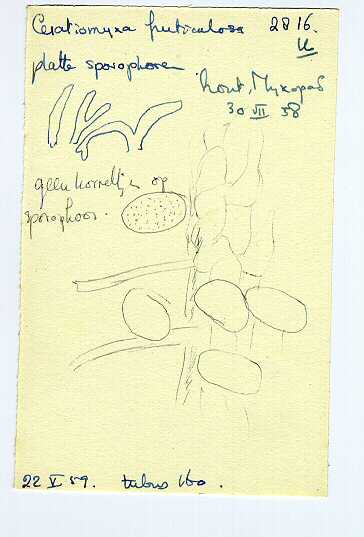 Ceratiomyxa fruticulosa 2816.
U
platte sporophoren
hout, Myxopad
30 VII 58
geen korreltjes op
sporophoor.
22 V 59. tubus 160.